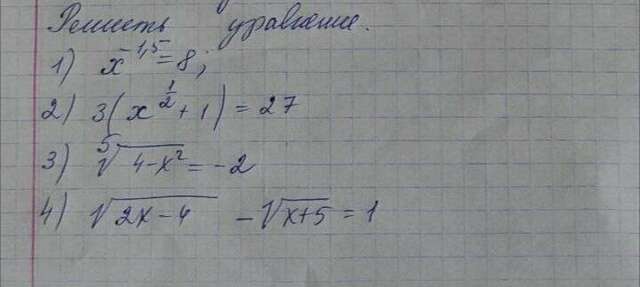 Решить уравнение.
1) x^{-1,5} = 8;
2) 3(x^{\frac{1}{2}} + 1) = 27
3) \sqrt[5]{4-x^2} = -2
4) \sqrt{2x-4} - \sqrt{x+5} = 1